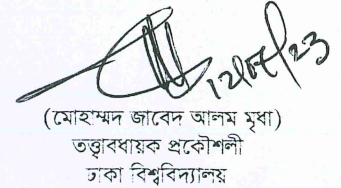 12/07/23
(মোহাম্মদ জাবেদ আলম মৃধা)
তত্ত্বাবধায়ক প্রকৌশলী
ঢাকা বিশ্ববিদ্যালয়